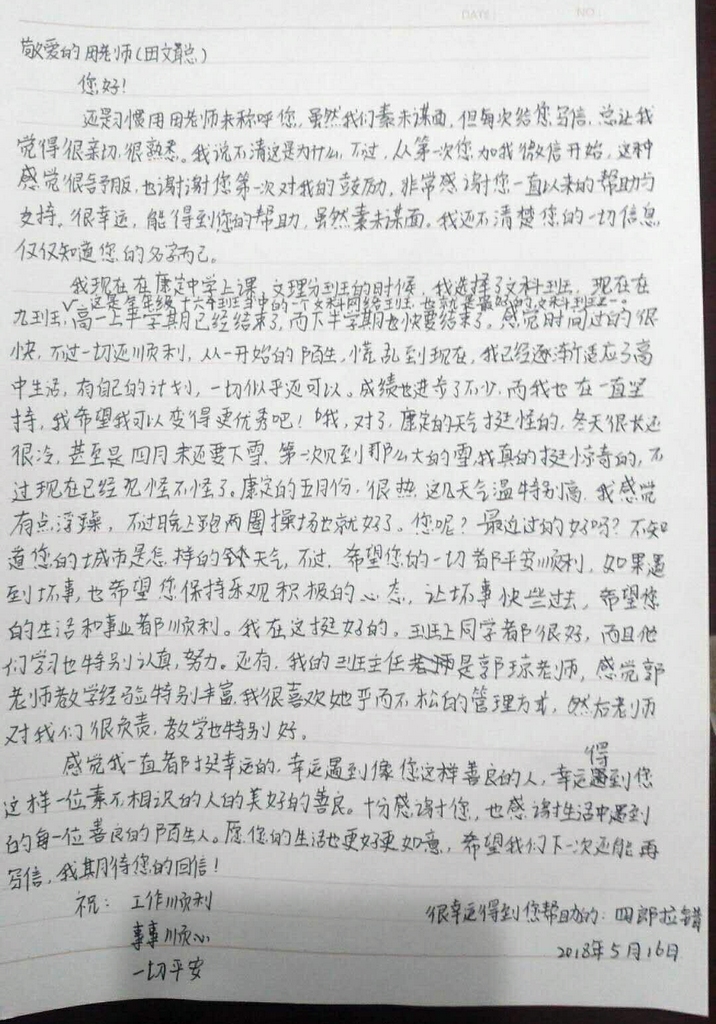 敬爱的田老师(田文聪)
您好!
还是习惯用田老师来称呼您,虽然我们素未谋面,但每次给您写信,总让我
觉得很亲切,很熟悉。我说不清这是为什么,不过,从第一次您加我微信开始,这种
感觉很舒服,也谢谢您第一次对我的鼓励,非常感谢您一直以来的帮助与
支持。很幸运,能得到您的帮助,虽然素未谋面。我还不清楚您的一切信息,
仅仅知道您的名字而已。
我现在在康定中学上课,文理分到班的时候,我选择了文科班,现在在
这是全年级十六个班当中的一个文科网络班,也就是最好的文科班之一。
九班,高一上半学期已经结束了,而下半学期也快要结束了,感觉时间过的很
快,不过一切还顺利,从一开始的陌生,慌乱到现在,我已经逐渐适应了高
中生活,有自己的计划,一切似乎还可以。成绩也进步了不少,而我也在一直坚
持,我希望我可以变得更优秀吧!哦,对了,康定的天气挺怪的,冬天很长还
很冷,甚至是四月末还要下雪,第一次见到那么大的雪,我真的挺惊奇的,不
过现在已经见怪不怪了。康定的五月份,很热,这几天气温特别高,我感觉
有点浮躁,不过晚上跑两圈操场也就好了。您呢?最近过的好吗?不知
道您的城市是怎样的天气,不过,希望您的一切都平安顺利,如果遇
到坏事,也希望您保持乐观积极的心态,让坏事快些过去,希望您
的生活和事业都顺利。我在这挺好的。班上同学都很好,而且他
们学习也特别认真,努力。还有,我的班主任是郭琼老师,感觉郭
老师教学经验特别丰富,我很喜欢她严而不松的管理方式,然后老师
对我们很负责,教学也特别好。
感觉我一直都挺幸运的,幸运遇到像您这样善良的人,幸运得到您
这样一位素不相识的人的美好的善良。十分感谢您,也感谢生活中遇到
的每一位善良的陌生人。愿您的生活也更好更如意,希望我们下一次还能再
写信,我期待您的回信!
祝:工作顺利
事事顺心
一切平安
很幸运得到您帮助的:四郎拉错
2018年5月16日